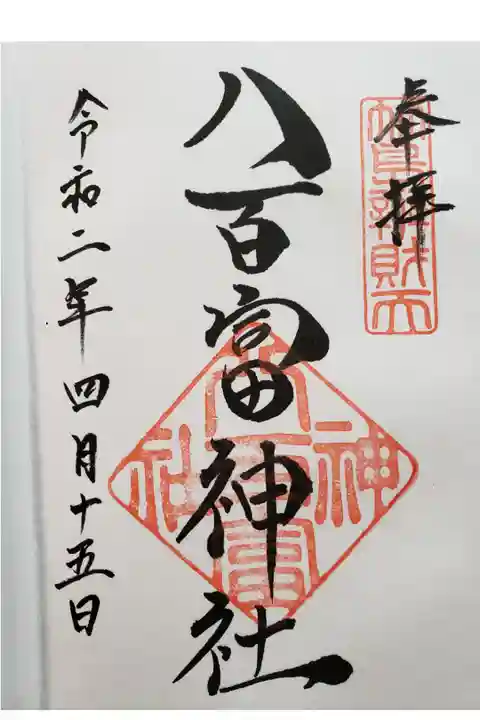 奉拝
八百富神社
令和二年四月十五日
八百富神社